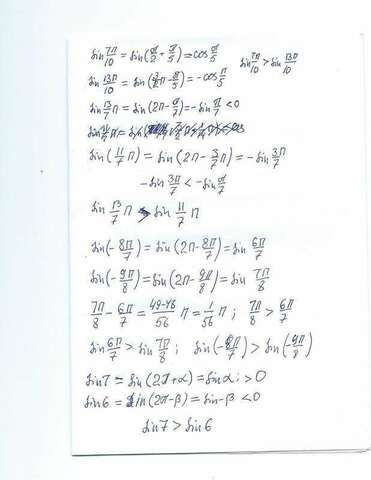 sin 7π/10 = sin(π/2 + π/5) = cos π/5
sin 7π/10 > sin 13π/10
sin 13π/10 = sin(3/2 π - π/5) = -cos π/5
sin 13/7 π = sin(2π - π/7) = -sin π/7 < 0
sin(11/7 π) = sin(2π - 3/7 π) = -sin 3π/7
-sin 3π/7 < -sin π/7
sin 13/7 π > sin 11/7 π
sin(-8π/7) = sin(2π - 8π/7) = sin 6π/7
sin(-9π/8) = sin(2π - 9π/8) = sin 7π/8
7π/8 - 6π/7 = 49-48/56 π = 1/56 π ; 7π/8 > 6π/7
sin 6π/7 > sin 7π/8 ; sin(-8π/7) > sin(-9π/8)
sin7 = sin(2π+α) = sin α ; > 0
sin6 = sin(2π-β) = sin-β < 0
sin7 > sin6